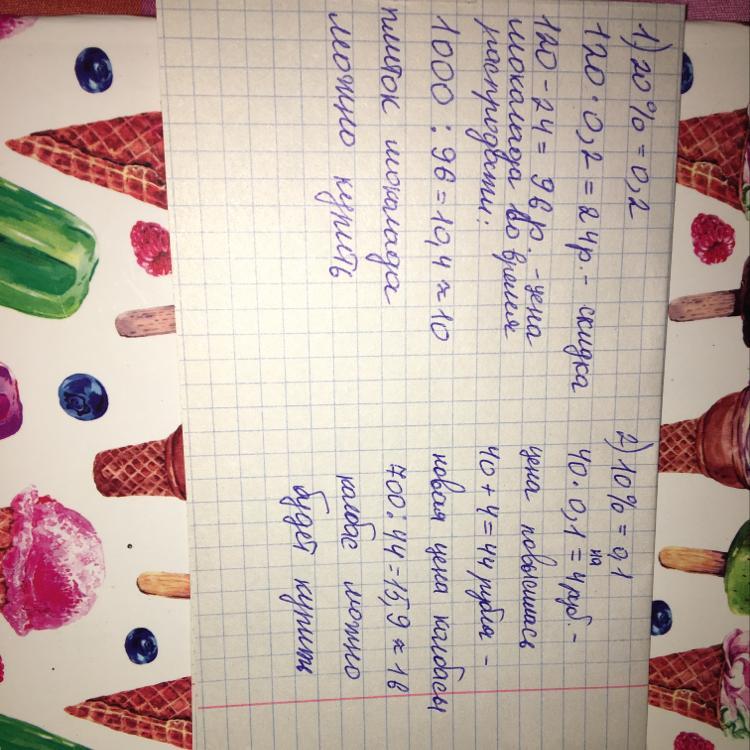 1) 20% = 0,2
120 · 0,2 = 24р. - скидка
120 - 24 = 96р. - цена
шокалада во время
распродажи.
1000 : 96 = 10,4 ≈ 10
плиток шокалада
можно купить
2) 10% = 0,1
40 · 0,1 = 4 руб. - на
цена повысилась
40 + 4 = 44 рубля -
новая цена калбасы
700 : 44 = 15,9 ≈ 16
калбас можно
будет купить